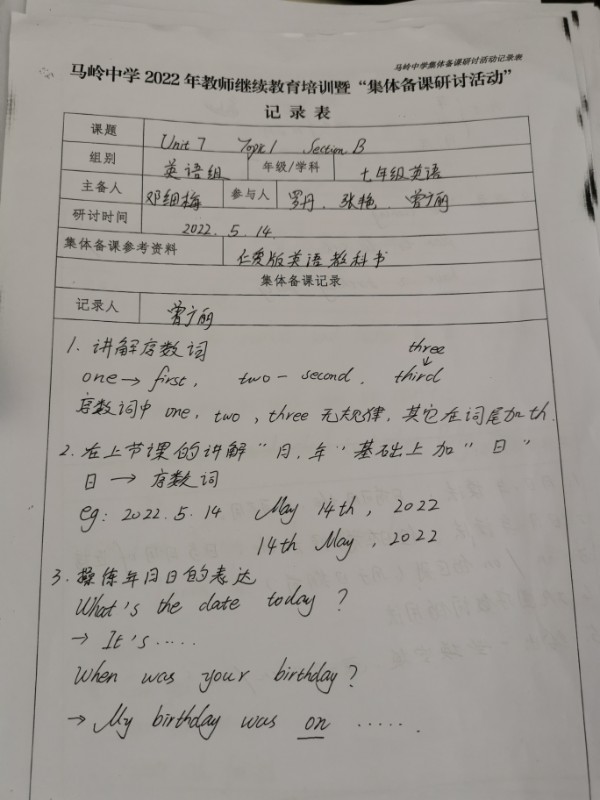 马岭中学集体备课研讨活动记录表
马岭中学 2022 年教师继续教育培训暨“集体备课研讨活动”
记录表
课题 Unit 7 Topic 1 Section B
组别 英语组 年级/学科 七年级英语
主备人 邓细梅 参与人 罗丹、张艳、曾广丽
研讨时间 2022.5.14.
集体备课参考资料 仁爱版英语教科书
集体备课记录
记录人 曾广丽
three
1. 讲解序数词 ↓
one → first, two — second. third
序数词中 one, two, three 无规律, 其它在词尾加 th.
2. 在上节课的讲解“月, 年”基础上加“日”
日 → 序数词
eg: 2022.5.14 May 14th, 2022
14th May, 2022
3. 操练年月日的表达
What's the date today?
→ It's .....
When was your birthday?
→ My birthday was on ......